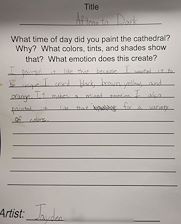 Title
Afternoon Dark
What time of day did you paint the cathedral?
Why? What colors, tints, and shades show
that? What emotion does this create?
I painted it like that because I wanted it to
be I used black, brown, yellow, and
orange. It makes a mixed emotion. I also
painted it like that for a variety
of colors.
Artist: Jayden